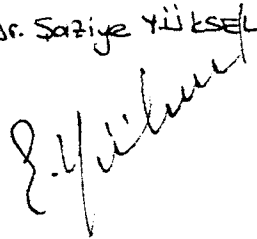 Dr. Saziye YÜKSEL